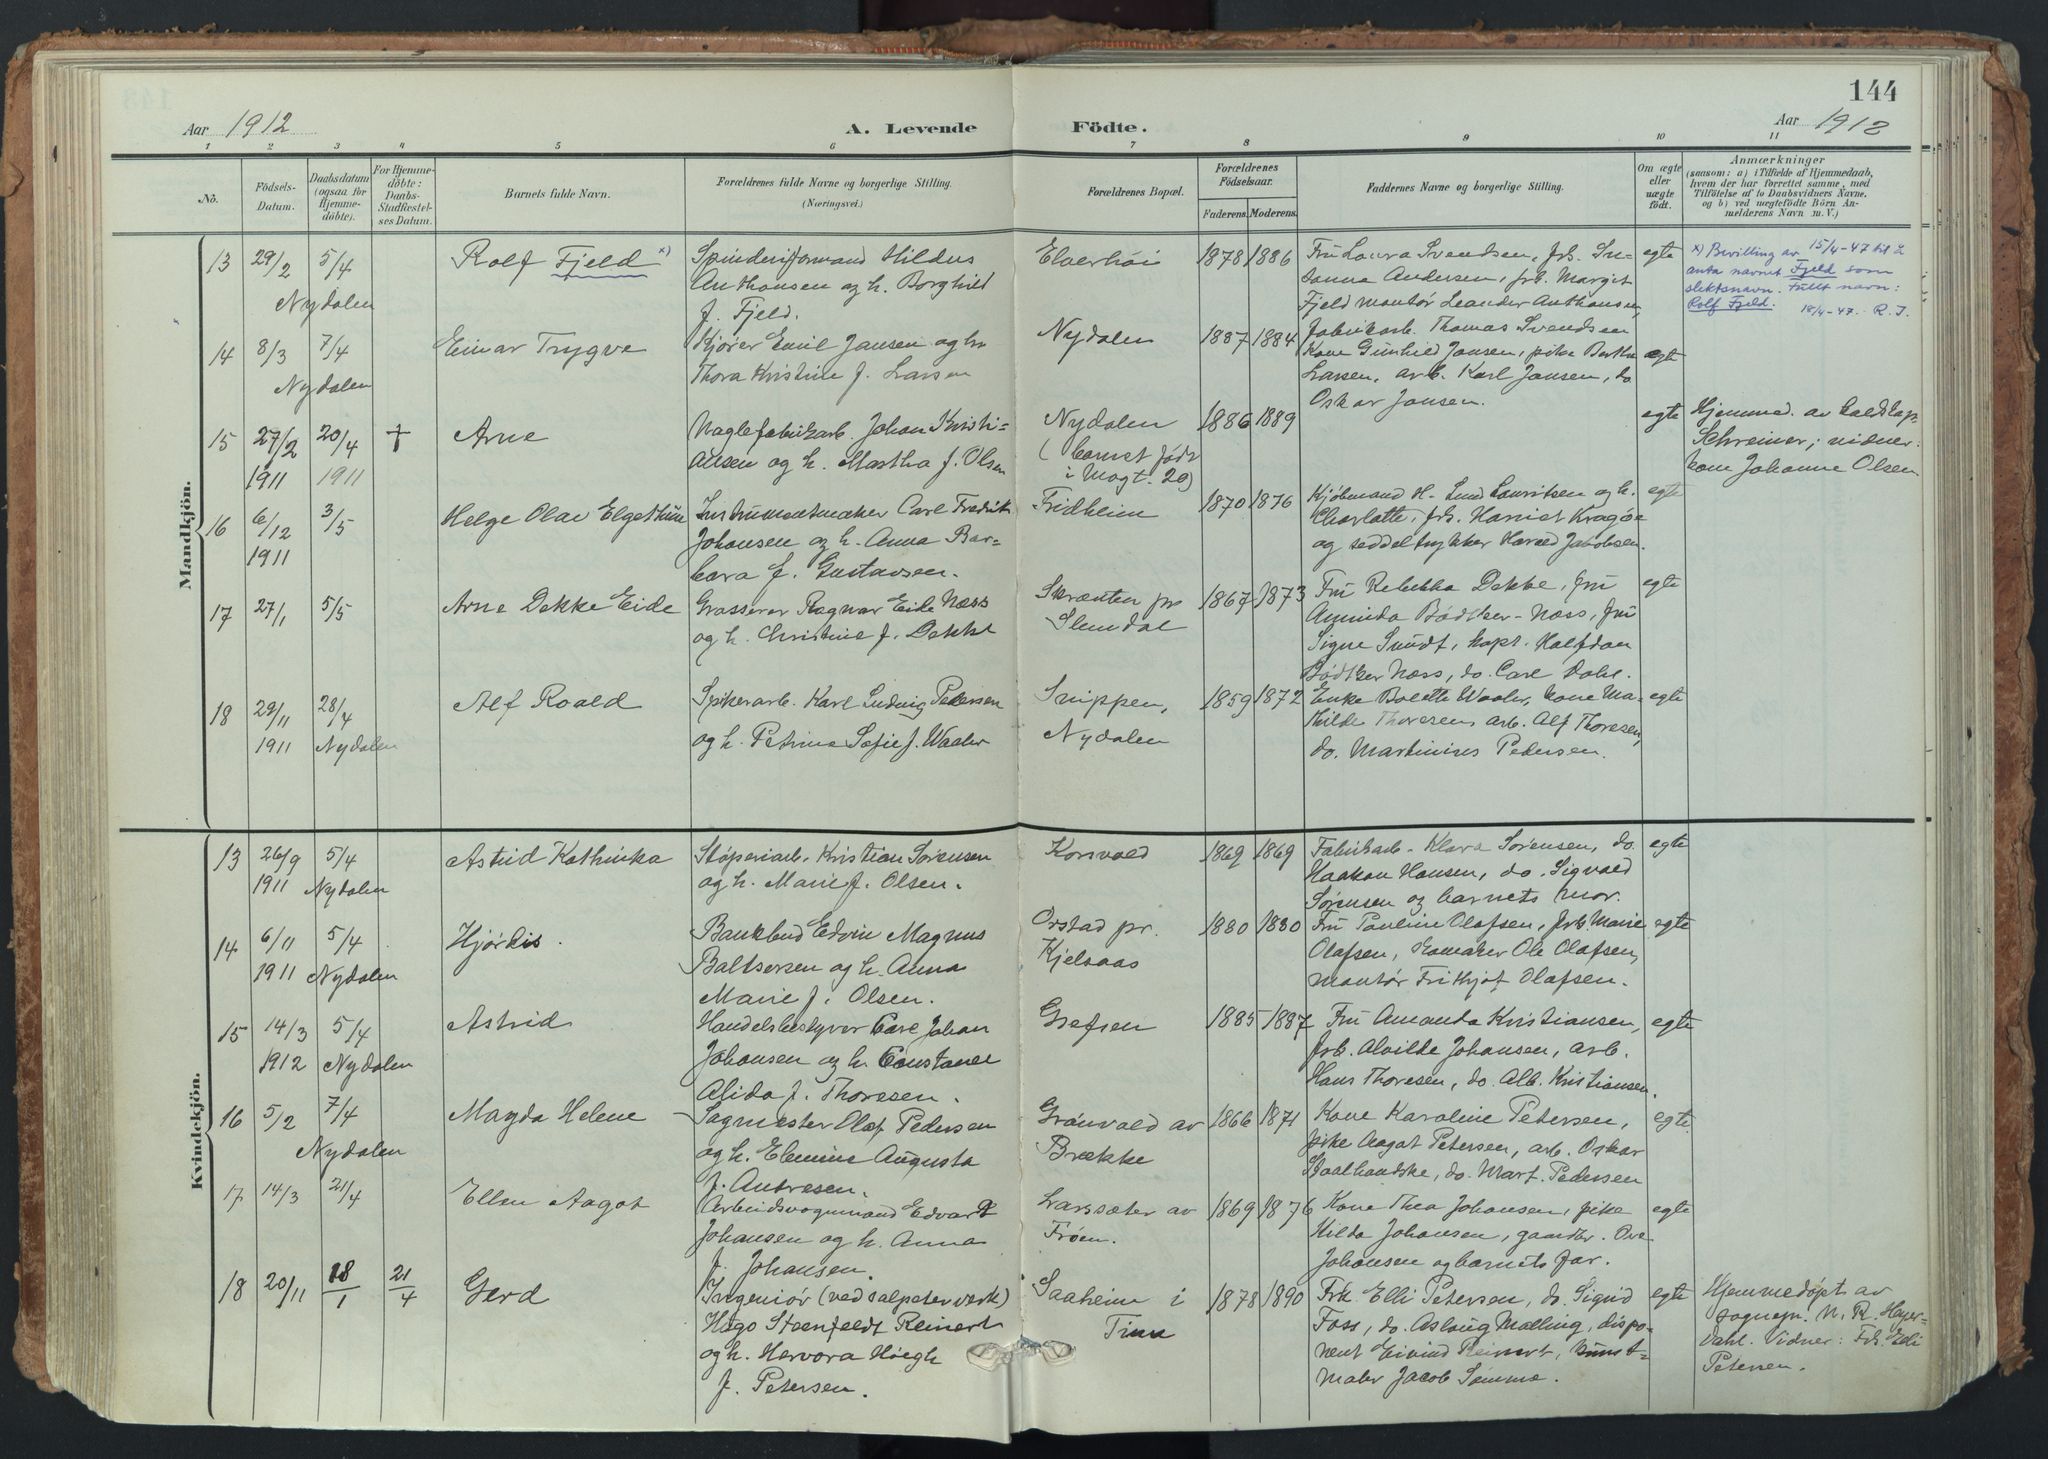 144
Aar 1912
A. Levende
Födte.
Aar 1912
1 2 3 4 5 6 7 8 9 10 11
No.
Födsels-
Datum.
Daabsdatum
(ogsaa for
Hjemme-
döbte).
For Hjemme-
döbte:
Daabs-
Stadfæstel-
ses Datum.
Barnets fulde Navn.
Forældrenes fulde Navne og borgerlige Stilling.
(Næringsvei.)
Forældrenes Bopæl.
Forældrenes
Födselsaar.
Faderens. Moderens.
Faddernes Navne og borgerlige Stilling.
Om ægte
eller
uægte
födt.
Anmærkninger
(saasom: a) i Tilfælde af Hjemmedaab,
hvem der har forrettet samme, med
Tilföielse af to Daabsvidners Navne,
og b) ved uægtefödte Börn An-
melderens Navn m. V.)
Mandkjön.
13 29/2 5/4
Nydalen
Rolf Fjeld x)
Spinderiformand Hildus
Anthonsen og h. Borghild
f. Fjeld.
Elverhöi
1878 1886
Fru Laura Svendsen, frk. Su-
sanna Andersen, frk. Margit
Fjeld montör Leander Anthonsen,
egte
x) Bevilling av 15/4-47 til å
anta navnet Fjeld som
slektsnavn. Fullt navn:
Rolf Fjeld. 18/4-47. R. J.
14 8/3 7/4
Nydalen
Einar Trygve
Kjörer Emil Jansen og h.
Thora Kristine f. Larsen
Nydalen
1887 1884
fabrikarb. Thomas Svendsen
Kone Gunhild Jansen, pike Bertha
Larsen, arb. Karl Jansen, do
Oskar Jansen.
egte
15 27/2 20/4 †
1911 1911
Arne
Naglefabrikarb. Johan Kristi-
ansen og h. Martha f. Olsen
Nydalen
(barnet födt
i Magt. 20)
1886 1889
egte
Hjemmed. av kaldskap.
Schreiner; vidner:
kone Johanne Olsen
16 6/12 3/5
1911
Helge Olav Elgethun
Instrumentmaker Carl Fredrik
Johansen og h. Anna Bar-
bara f. Gustavsen.
Fridheim
1870 1876
Kjöbmand H. Lund Lauritsen og h.
Charlotte, frk. Harriet Kragöe
og seddeltrykker Harald Jakobsen.
egte
17 27/1 5/5
Arne Dekke Eide
Grosserer Ragnar Eide Næss
og h. Christine f. Dekke
Skrænten pr
Slemdal
1867 1873
Fru Rebekka Dekke, fru
Aminda Bödtker-Næss, fru
Signe Sundt, kapt. Halfdan
Bödtker Næss, do. Carl Dahl.
egte
18 29/11 28/4
1911 Nydalen
Alf Roald
Spikerarb. Karl Ludvig Pedersen
og h. Petrine Sofie f. Waaler
Snippen,
Nydalen
1859 1872
Enke Bolette Waaler, kone Ma-
thilde Thoresen, arb. Alf Thoresen,
do. Martinius Pedersen.
egte
Kvindekjön.
13 26/9 5/4
1911 Nydalen
Astrid Kathinka
Stöperiarb. Kristian Sörensen
og h. Marie f. Olsen.
Korsvold
1869 1869
Fabrikarb. Klara Sörensen, do.
Haakon Hansen, do. Sigvald
Sörensen og barnets mor.
egte
14 6/11 5/4
1911 Nydalen
Hjördis.
Bankbud Edvin Magnus
Baltsersen og h. Anna
Marie f. Olsen.
Orstad pr.
Kjelsaas
1880 1880
Fru Pauline Olafsen, frk. Marie
Olafsen, skomaker Ole Olafsen,
montör Frithjof Olafsen.
egte
15 14/3 5/4
1912 Nydalen
Astrid
Handelsbestyrer Carl Johan
Johansen og h. Constance
Alida f. Thoresen.
Grefsen
1885 1887
Fru Amanda Kristiansen,
frk. Alvilde Johansen, arb.
Hans Thoresen, do. Alb. Kristiansen.
egte
16 5/2 7/4
Nydalen
Magda Helene
Sagmester Olaf Pedersen
og h. Elenine Augusta
f. Andresen.
Grönvold av
Brække
1866 1871
Kone Karoline Petersen,
pike Aagot Petersen, arb. Oskar
Staalhandske, do. Mart. Pedersen
egte.
17 14/3 21/4
Ellen Aagot
Arbeidsvognmand Edvard
Johansen og h. Anna
f. Johansen.
Larssæter av
Fröen.
1869 1876
Kone Thea Johansen, pike
Hilda Johansen, gaardbr. Ove
Johansen og barnets far.
egte
18 20/11 18/1 21/4
Gerd
Ingeniör (ved salpeterverk)
Hugo Steenfeldt Reinert
og h. Hervora Höegh
f. Petersen.
Saaheim i
Tinn
1878 1890
Frk. Elli Petersen, do. Sigrid
Foss, do. Aslaug Malling, dispo-
nent Eivind Reinert, kunst-
maler Jacob Sömme.
egte
Hjemmedöpt av
sognepr. N. R. Heyer-
dahl. Vidner: Frk. Elli
Petersen.